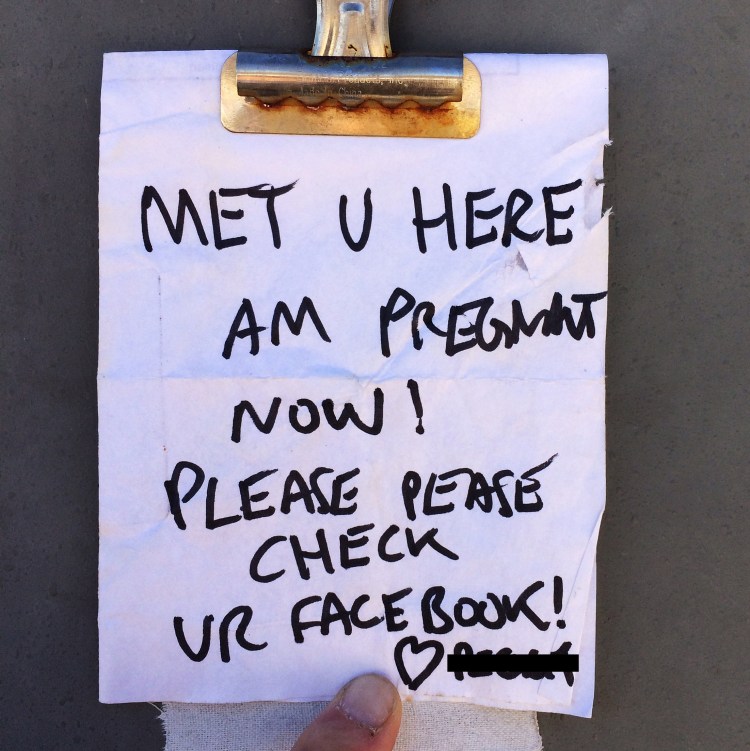 MET U HERE
AM PREGNANT
NOW!
PLEASE PLEASE
CHECK
UR FACEBOOK!
♡